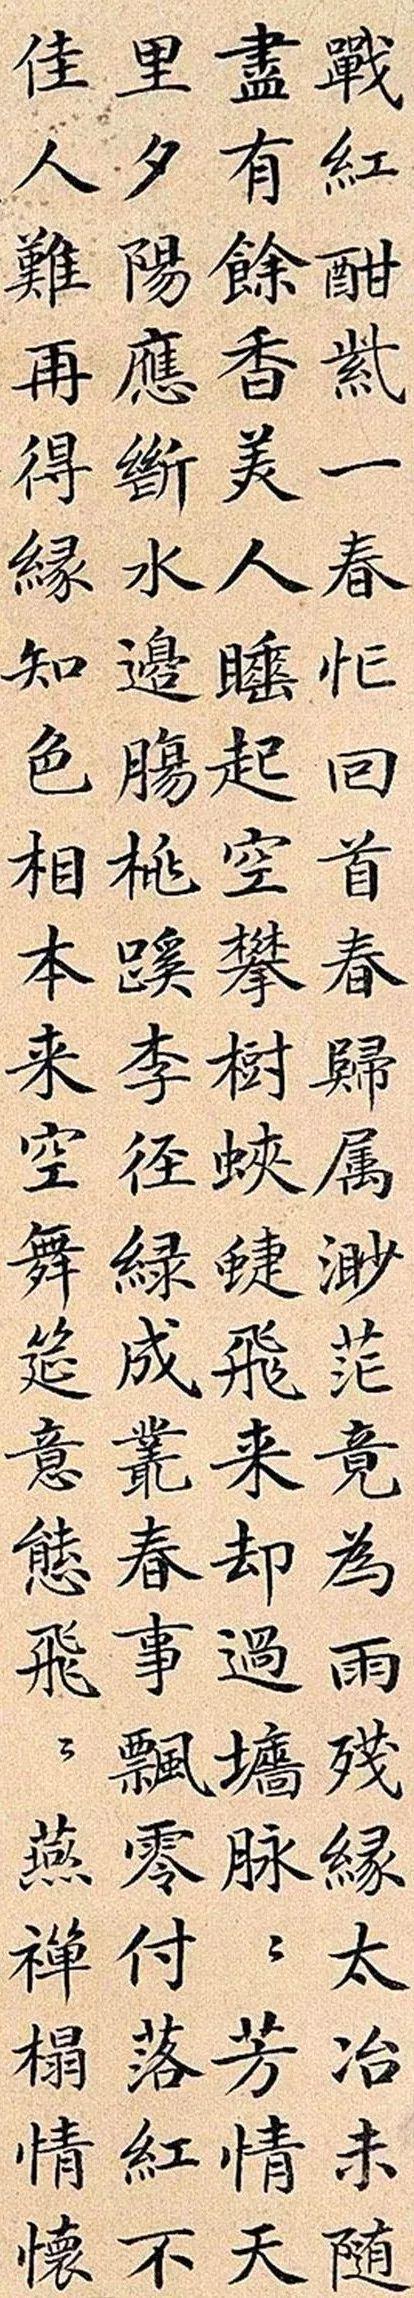 戰紅酣紫一春忙回首春歸属渺茫竟為雨残縁太冶未随
盡有餘香美人睡起空攀樹蛺蜨飛来却過墻脉〻芳情天
里夕陽應斷水邊腸桃蹊李徑緑成叢春事飄零付落紅不
佳人難再得縁知色相本来空舞筵意態飛〻燕禪榻情懷